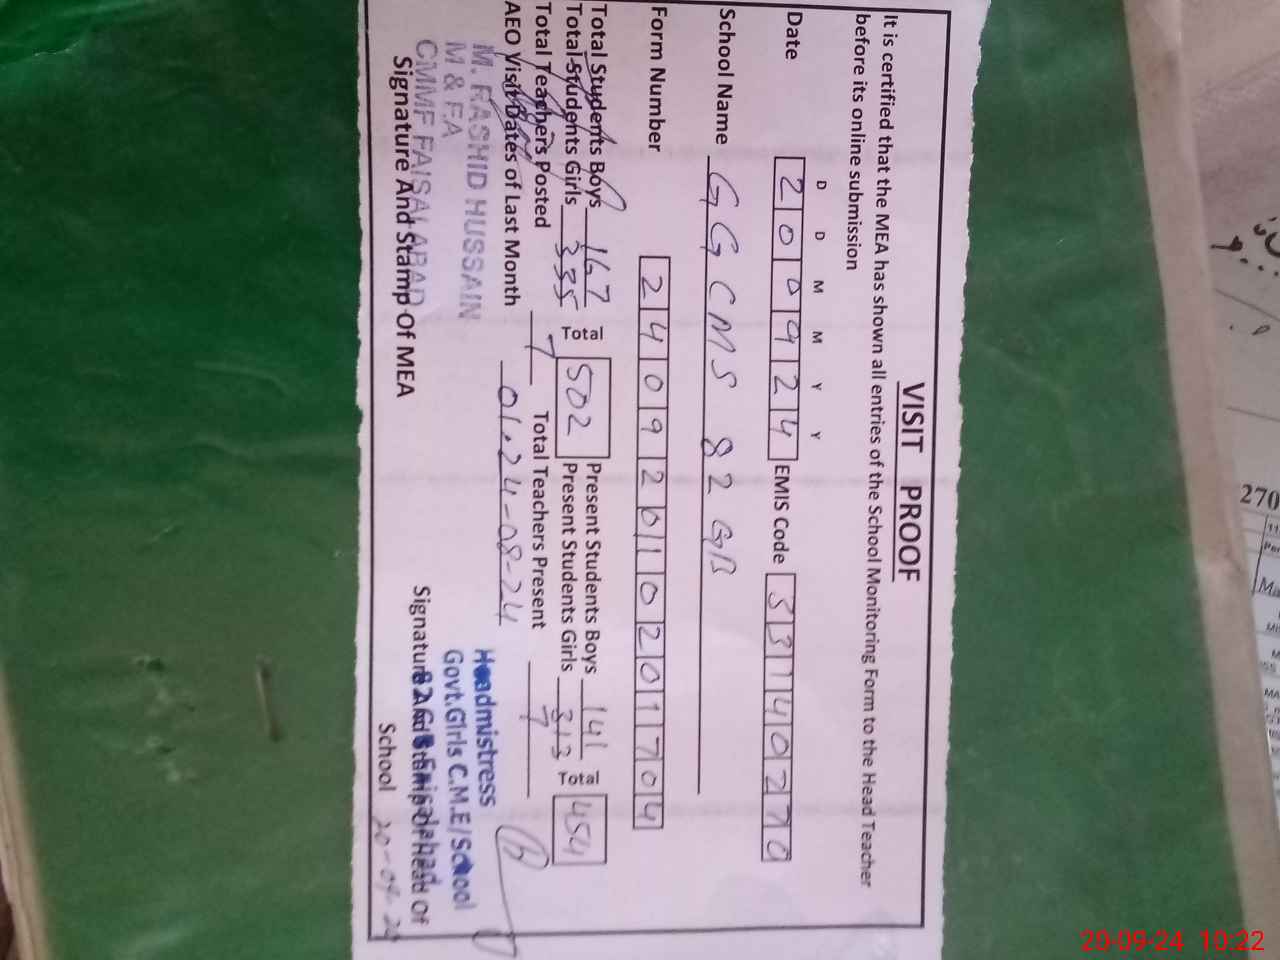 VISIT PROOF
It is certified that the MEA has shown all entries of the School Monitoring Form to the Head Teacher
before its online submission
D D M M Y Y
Date 200924 EMIS Code 33140270
School Name GGCMS 82 GB
Form Number 2409261020 1704
Total Students Boys 167 Total 502 Present Students Boys 141 Total 454
Total Students Girls 335 Present Students Girls 313
Total Teachers Posted 7 Total Teachers Present 7
AEO Visit Dates of Last Month 01, 24-08-24
M. RASHID HUSSAIN
M & EA
CMMF FAISALABAD
Signature And Stamp Of MEA
Headmistress
Govt.Girls C.M.E/School
Signature And Stamp Of Head Of
School 20-09-24
270
20-09-24 10:22